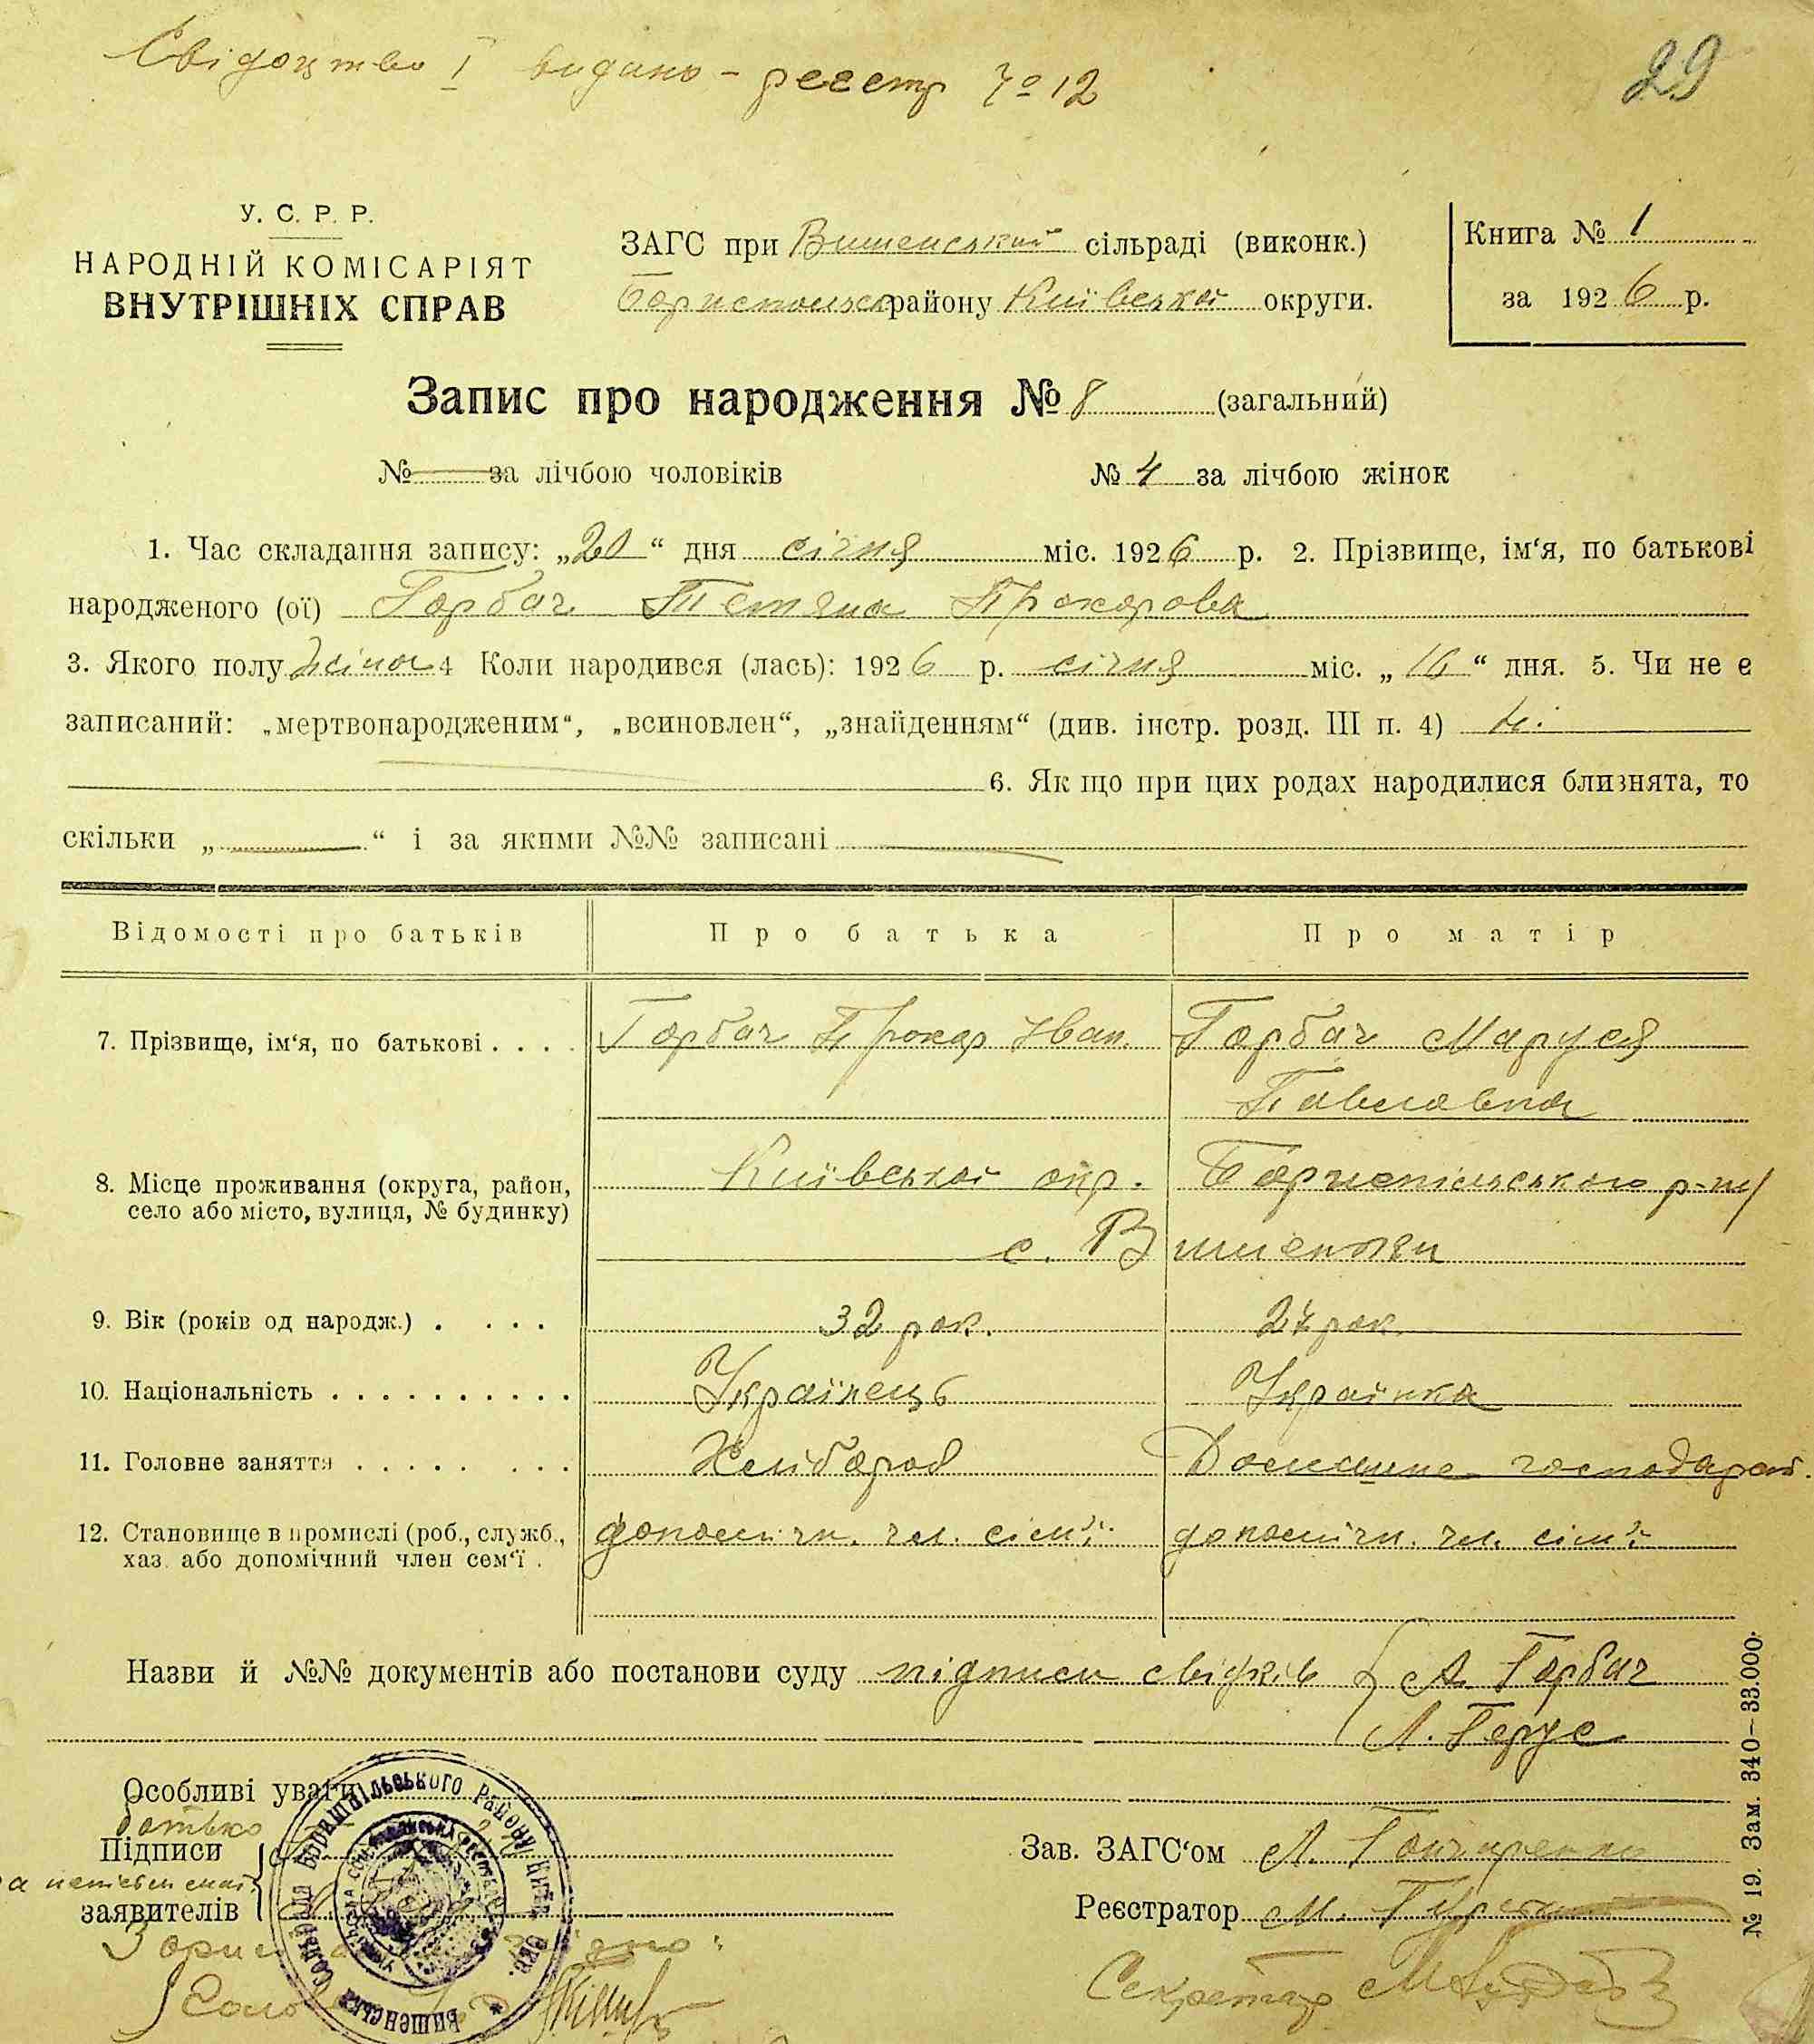 Свідоцтво І видано - реєстр № 12
29
У. С. Р. Р.
НАРОДНІЙ КОМІСАРІЯТ
ВНУТРІШНІХ СПРАВ
ЗАГС при Вишенській сільраді (виконк.)
району Київської округи.
Книга № 1
за 1926 р.
Запис про народження № 8 (загальний)
№ за лічбою чоловіків
№ 4 за лічбою жінок
1. Час складання запису: „20“ дня січня міс. 1926 р. 2. Прізвище, ім‘я, по батькові
народженого (ої) Горбач Тетяна Прохорова
3. Якого полу жіноч 4 Коли народився (лась): 1926 р. січня міс. „16“ дня. 5. Чи не є
записаний: „мертвонародженим“, „всиновлен“, „знайденням“ (див. інстр. розд. III п. 4) ні
6. Як що при цих родах народилися близнята, то
скільки „ “ і за якими №№ записані
Відомості про батьків
Про батька
Про матір
7. Прізвище, ім‘я, по батькові . . . .
Горбач Прохор Іван.
Горбач Маруся
Павлавна
8. Місце проживання (округа, район,
село або місто, вулиця, № будинку)
Київської окр. Бориспільського р-ну
с. Вишеньки
9. Вік (років од народж.) . . . .
32 рок.
27 рок.
10. Національність . . . . . . . . . .
Українець
Українка
11. Головне заняття . . . . . . . .
Хлібороб
Домашне господарст.
12. Становище в промислі (роб., служб.,
хаз. або допомічний член сем‘ї .
допомічн. чл. сім'ї
допомічн. чл. сім'ї
Назви й №№ документів або постанови суду підписи свідків А. Горбач
Л. Герус
Особливі уваги
батько
Підписи
заявителів
Зав. ЗАГС‘ом Л. Гончаренко
Реєстратор М.
Секретар
№ 19. Зам. 340—33.000.
Вишенська Сольрада Боришпільського Району Київ. Окр.